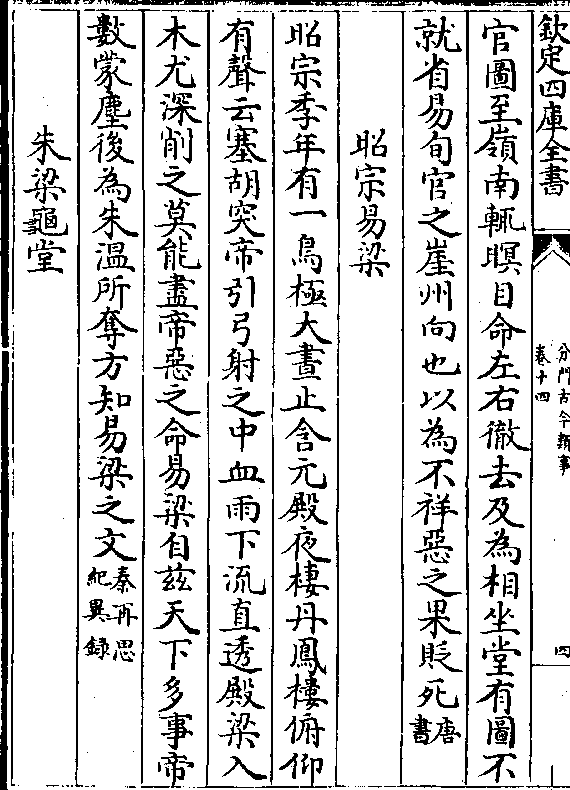 欽定四庫全書
分門古今類事
卷十四
四
官圖至嶺南輒瞑目命左右徹去及為相坐堂有圖不
就省易旬官之崖州向也以為不祥惡之果貶死唐書
昭宗易梁
昭宗季年有一鳥極大晝止含元殿夜棲丹鳳樓俯仰
有聲云塞胡突帝引弓射之中血雨下流直透殿梁入
木尤深削之莫能盡帝惡之命易梁自兹天下多事帝
數蒙塵後為朱溫所奪方知易梁之文秦再思紀異録
朱梁龜堂